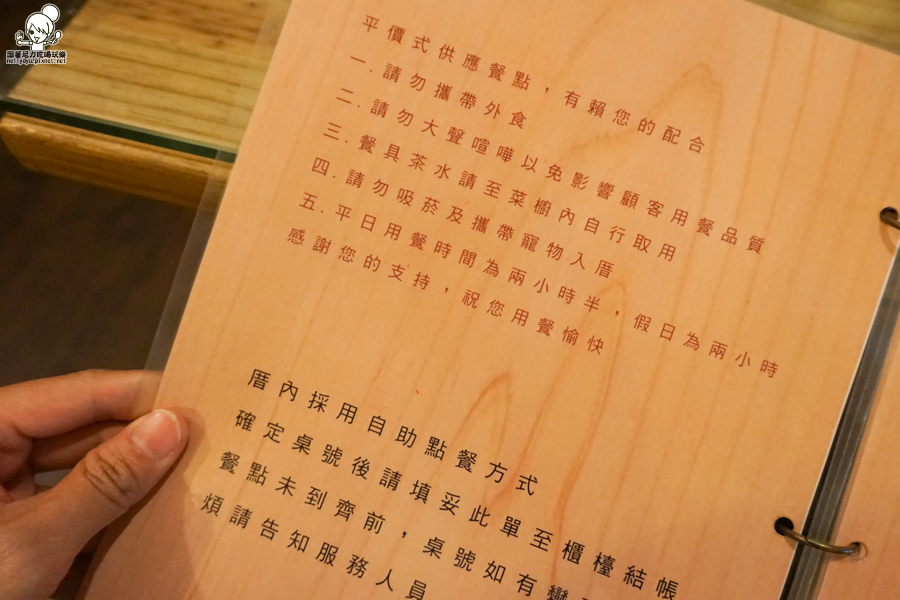 跟著尼力吃喝玩樂
nellydyu.pixnet.net
平價式供應餐點，有賴您的配合
一.請勿攜帶外食
二.請勿大聲喧嘩以免影響顧客用餐品質
三.餐具茶水請至菜櫥內自行取用
四.請勿吸菸及攜帶寵物入厝
五.平日用餐時間為兩小時半，假日為兩小時
感謝您的支持，祝您用餐愉快
厝內採用自助點餐方式
確定桌號後請填妥此單至櫃檯結帳
餐點未到齊前，桌號如有變
煩請告知服務人員